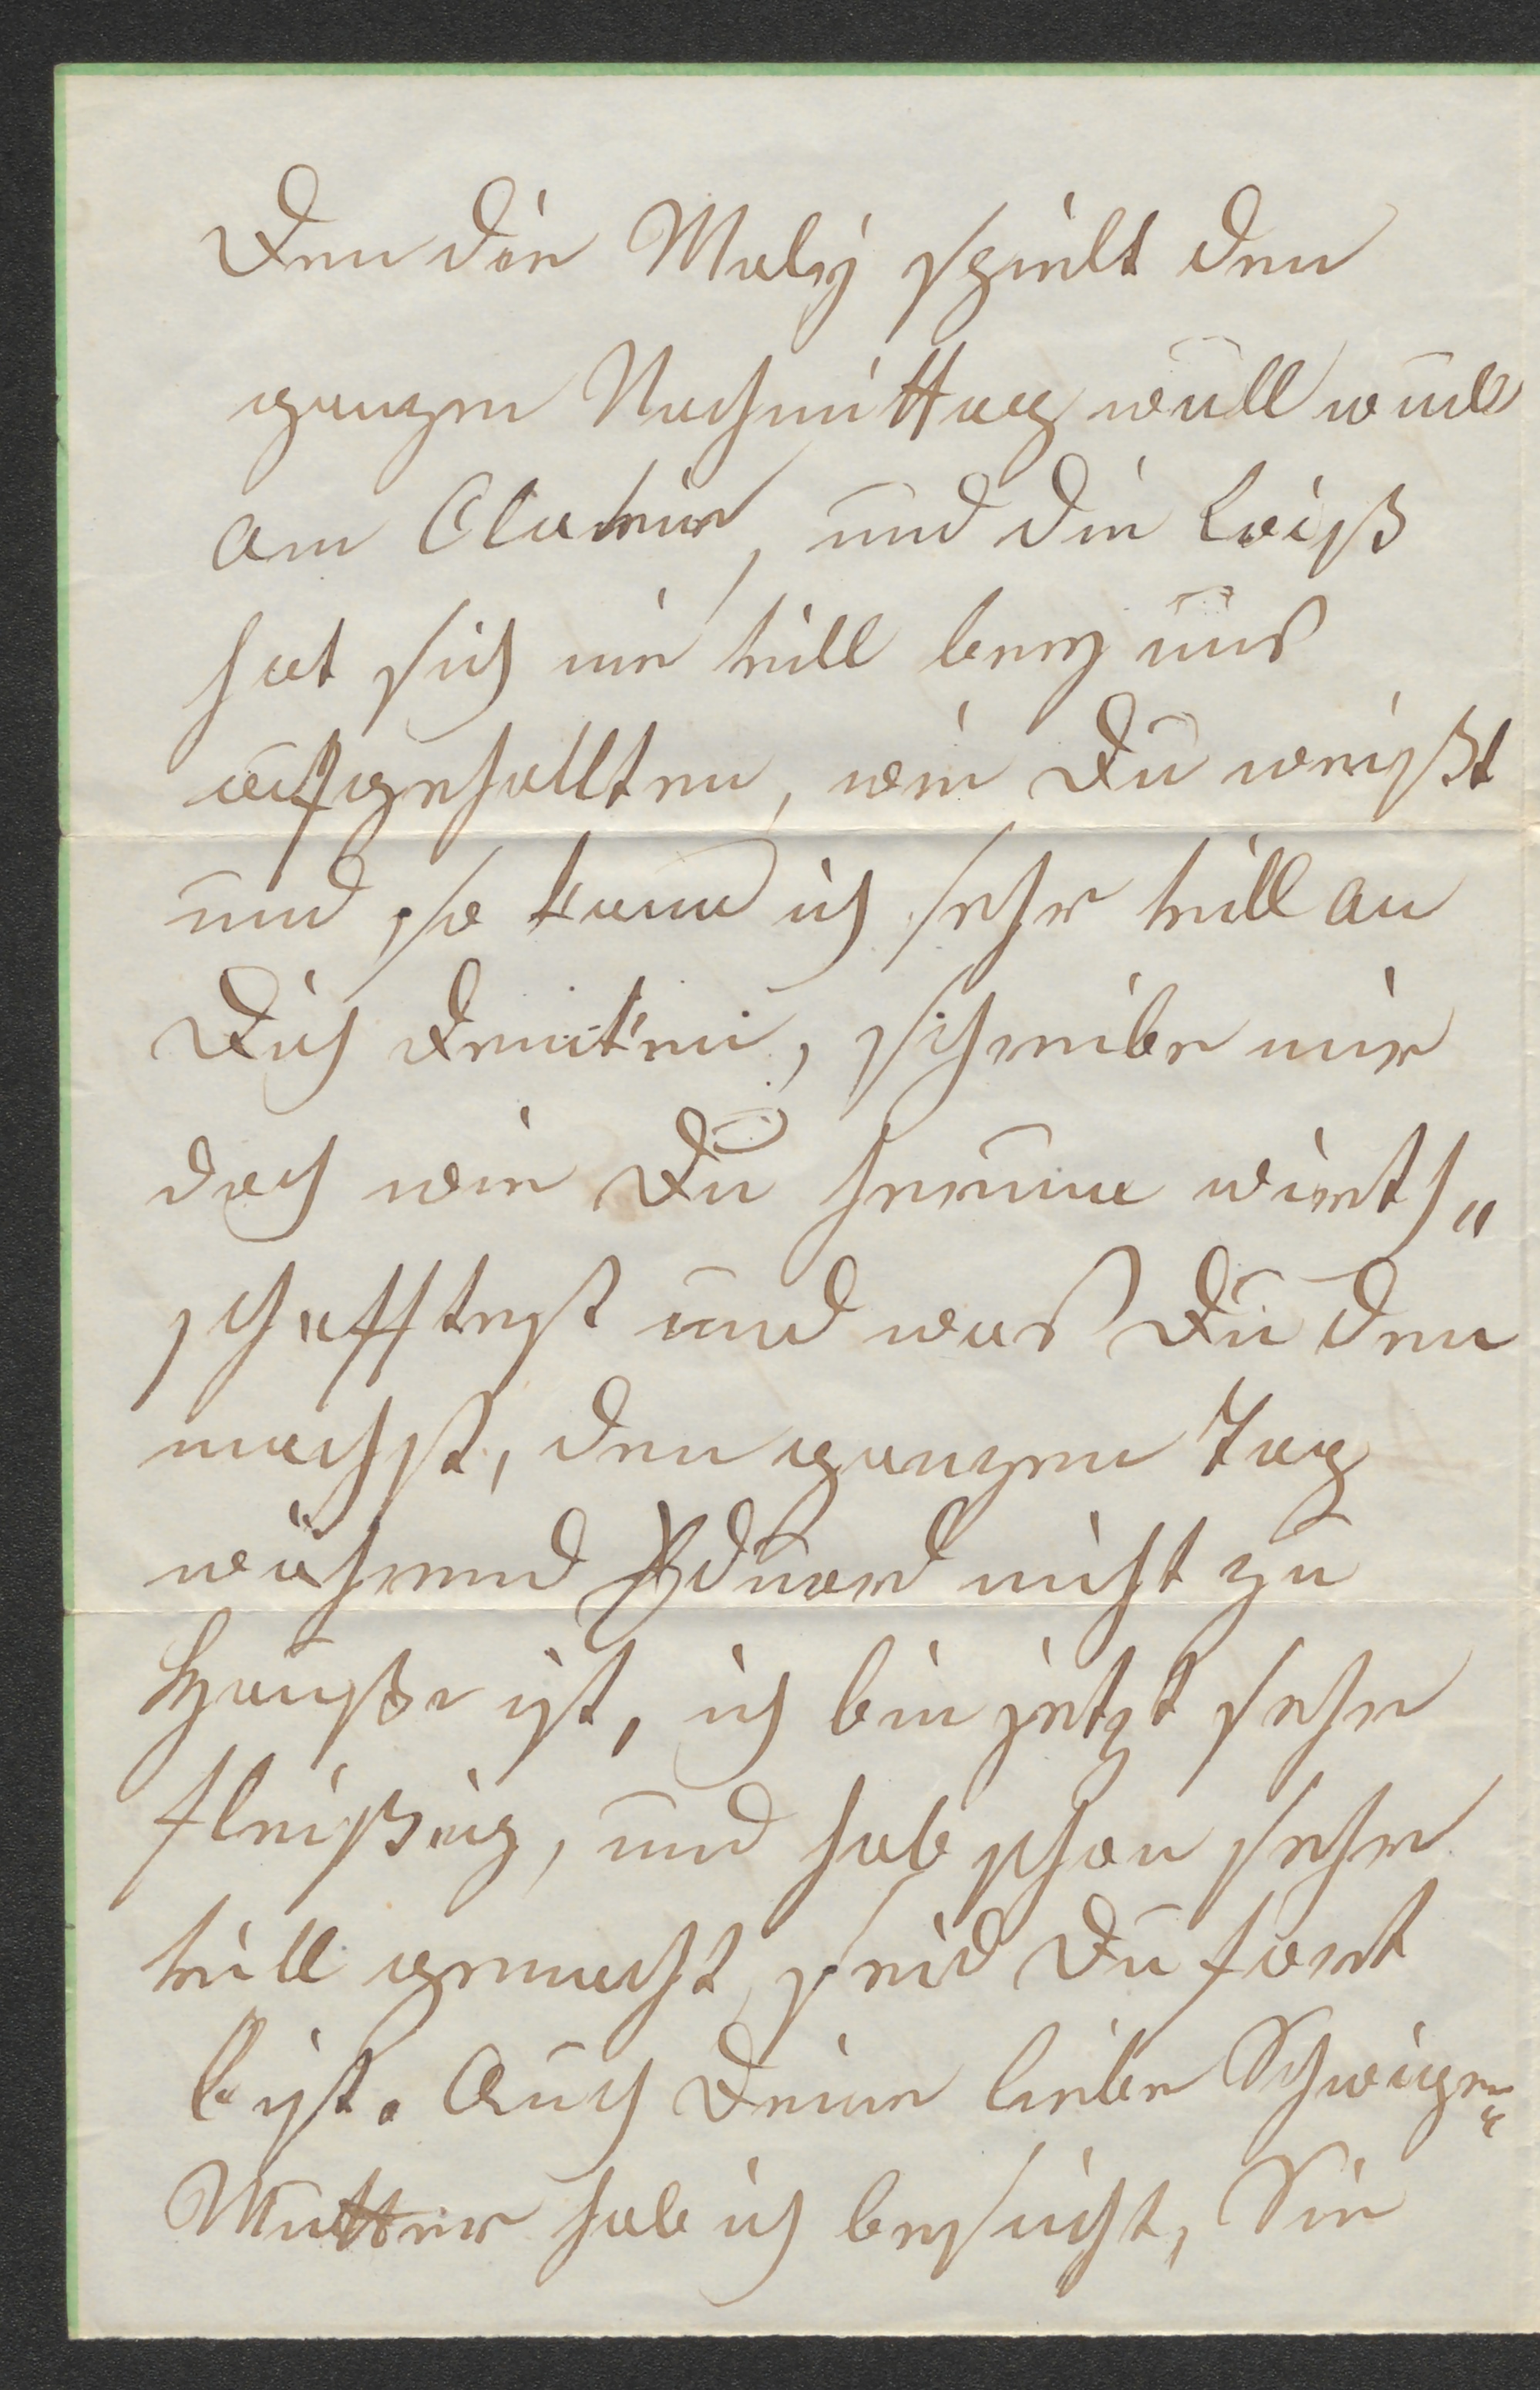 Den die Maly spielt den
ganzen Nachmittag
am Clavier, und die Loiß
hat sich nie vill bey uns
aufgehallten, wie Du weißt
und so kann ich sehr vill an
Dich denken, schreibe mir
doch wie Du herumm wirth„
schafftest und was Du den
machst, den ganzen Tag
während Eduard nicht zu
Hauße ist, ich bin jetzt sehr
fleißig, und hab schon sehr
vill gemacht, seid Du fort
bist. Auch Deine liebe Schwiger„
Mutter hab ich besucht, Sie